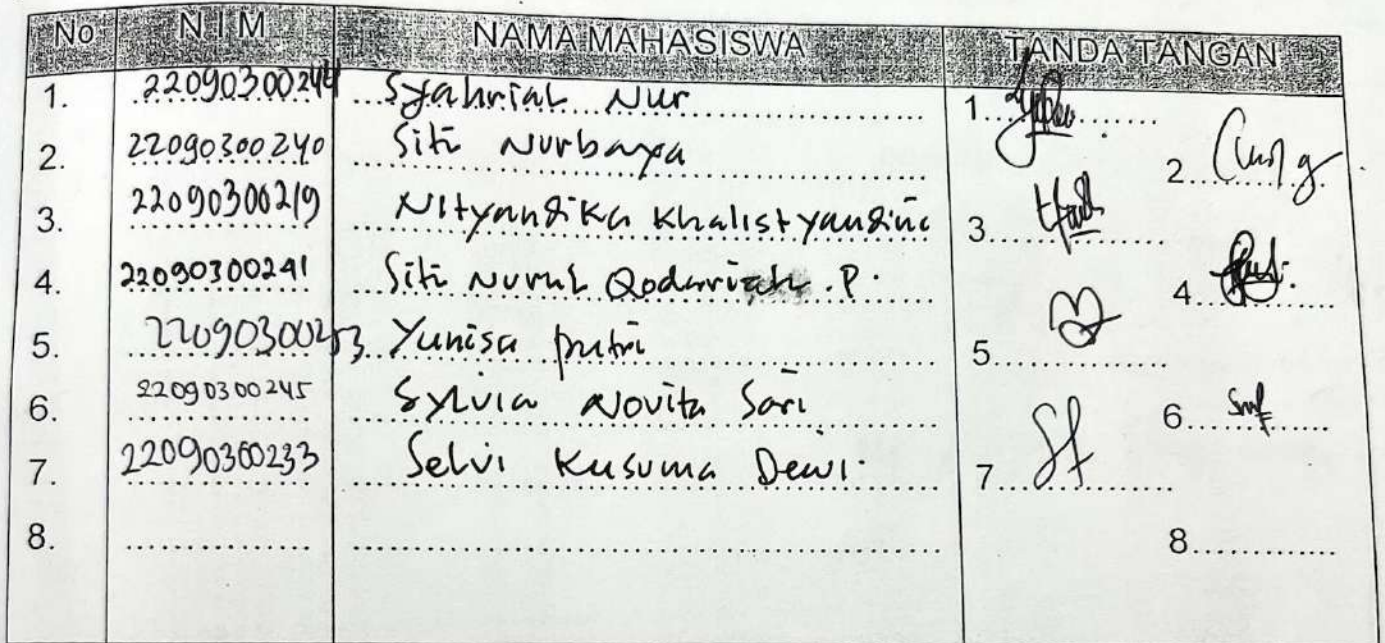 No NIM NAMA MAHASISWA TANDA TANGAN
1. 22090300244 Syahrial Nur 1.
2. 22090300240 Siti Nurbaya 2.
3. 22090300219 Nityandika Khalistyandina 3.
4. 22090300241 Siti Nurul Qodariah . P. 4.
5. 22090300253 Yunisa putri 5.
6. 22090300245 Sylvia Novita Sari 6.
7. 22090300233 Selvi Kusuma Dewi. 7.
8. 8.